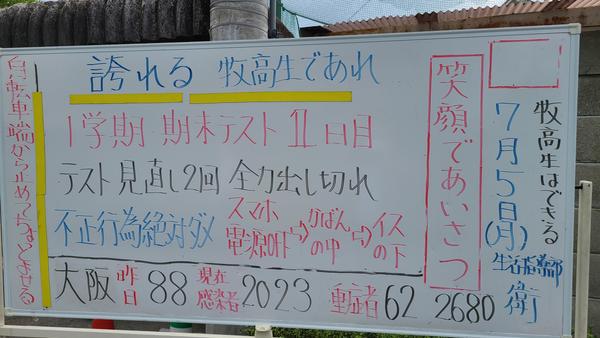 牧高生はできる
7月5日(月)
生活指導部
衛
笑顔であいさつ
誇れる 牧高生であれ
1学期 期末テスト 1日目
テスト見直し2回 全力出し切れ
不正行為絶対ダメ
スマホ電源OFF⇨かばんの中⇨イスの下
大阪 昨日 88 現在感染者 2023 重症者 62 2680